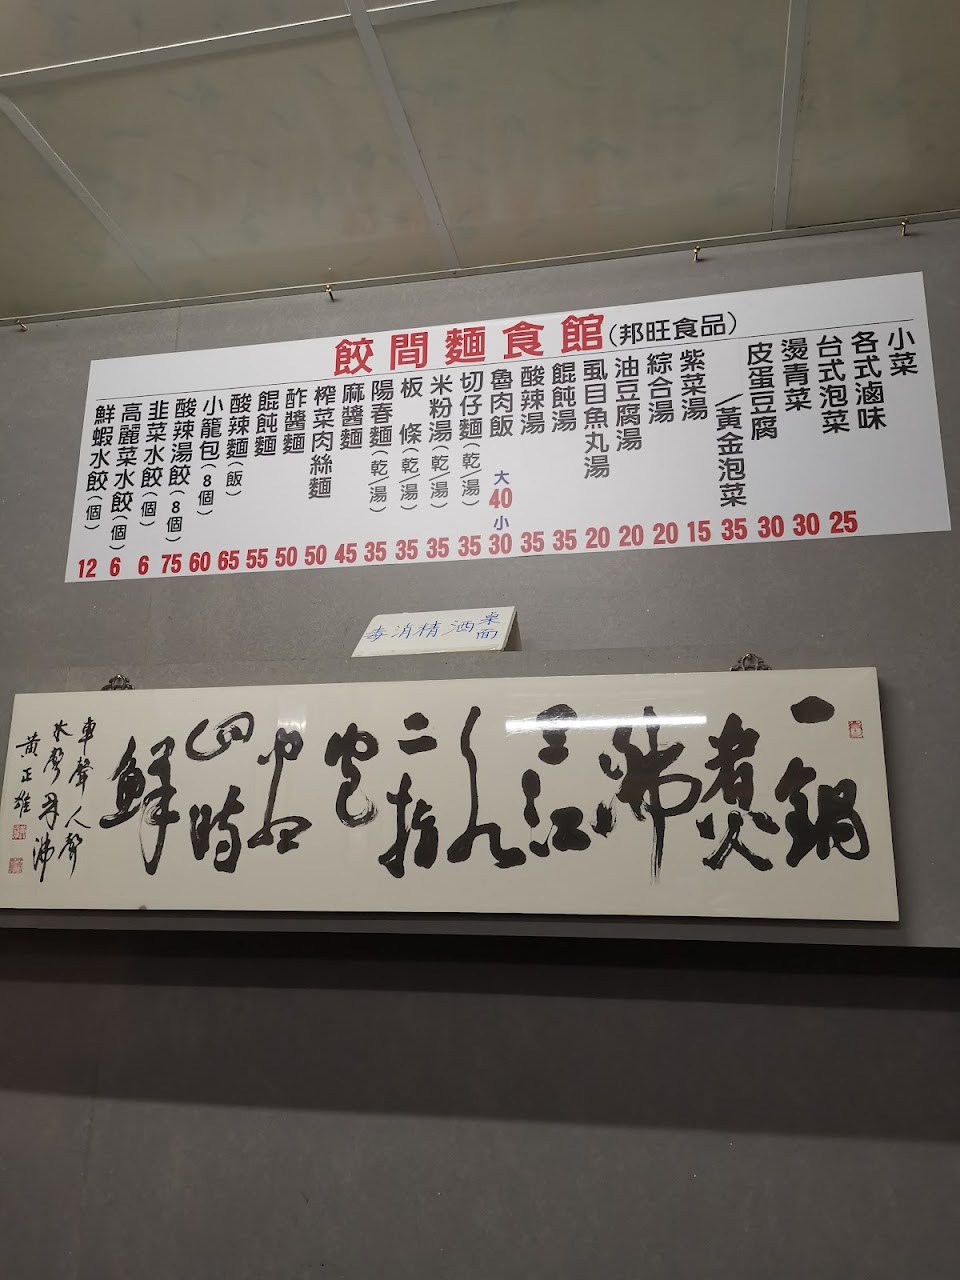 餃間麵食館(邦旺食品)
小菜
各式滷味 25
台式泡菜 30
燙青菜 30
皮蛋豆腐
/黃金泡菜 35
紫菜湯 15
綜合湯 20
油豆腐湯 20
虱目魚丸湯 20
餛飩湯 35
酸辣湯 35
魯肉飯 大40 小30
切仔麵(乾/湯) 35
米粉湯(乾/湯) 35
板條(乾/湯) 35
陽春麵(乾/湯) 35
麻醬麵 45
榨菜肉絲麵 50
酢醬麵 50
餛飩麵 55
酸辣麵(飯) 65
小籠包(8個) 60
酸辣湯餃(8個) 75
韭菜水餃(個) 6
高麗菜水餃(個) 6
鮮蝦水餃(個) 12
桌面酒精消毒
一鍋煮沸三江水
二指包出四時鮮
車聲人聲
水聲鼎沸
黃正雄